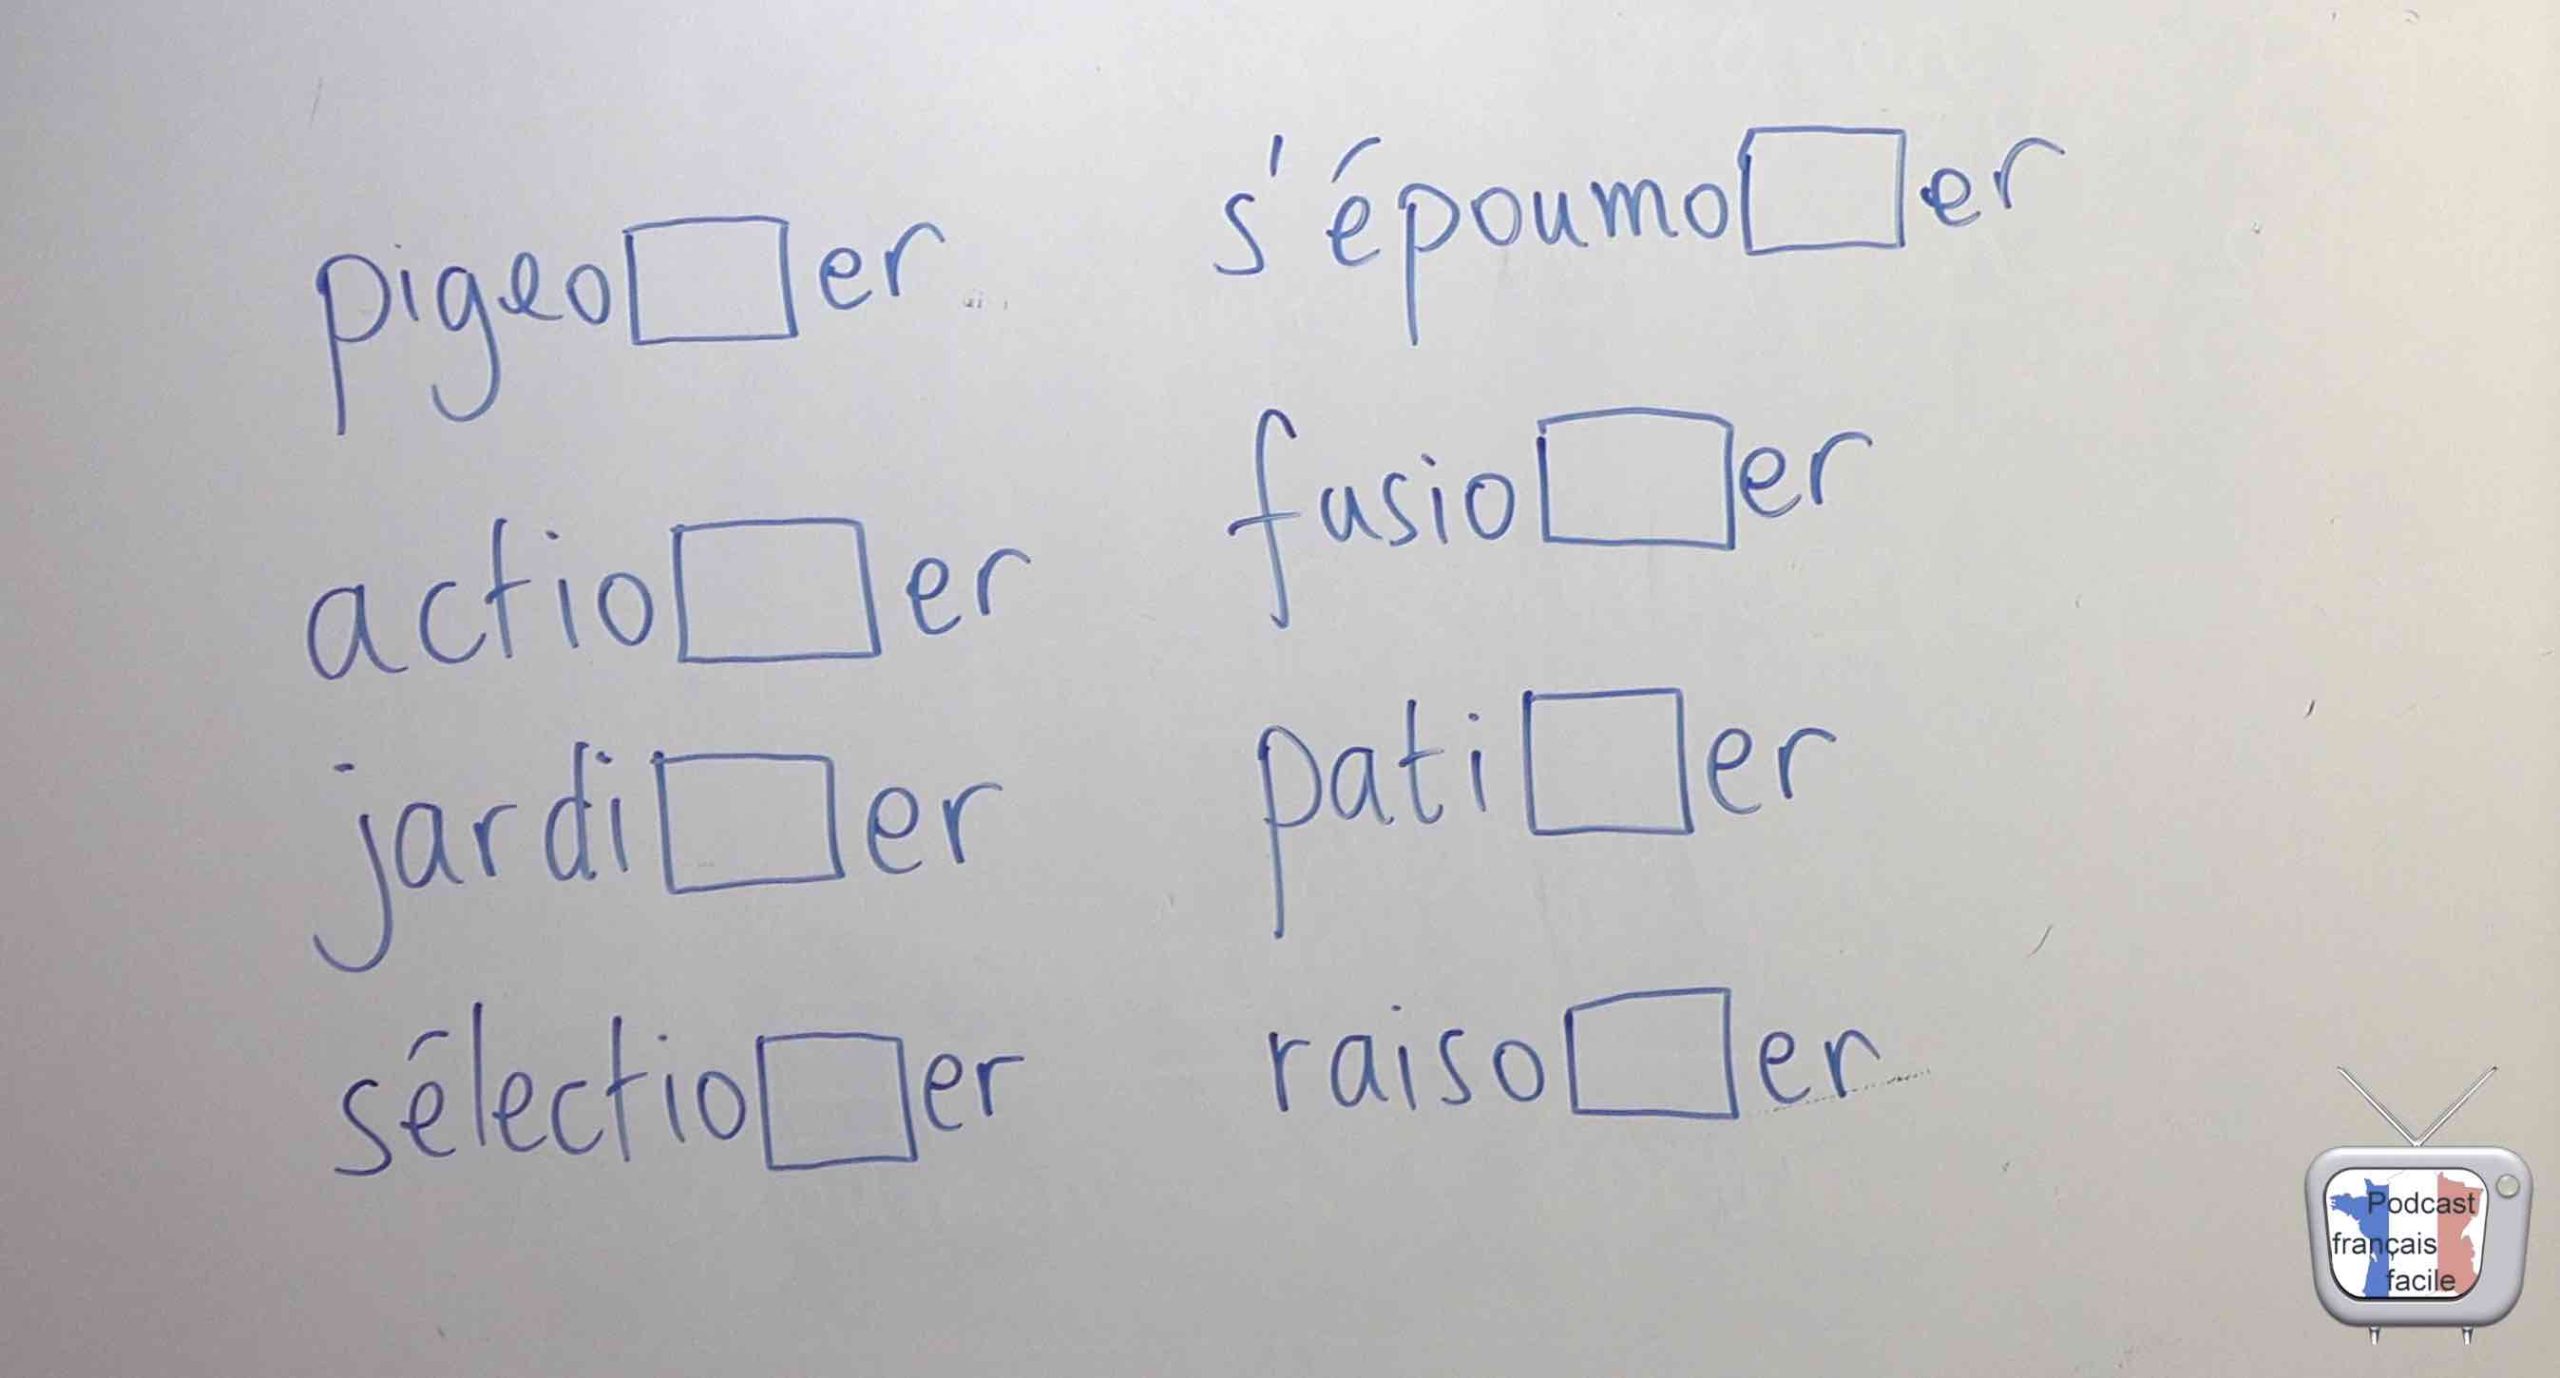 pigeo□er
actio□er
jardi□er
sélectio□er
s'époumo□er
fusio□er
pati□er
raiso□er
Podcast
français
facile